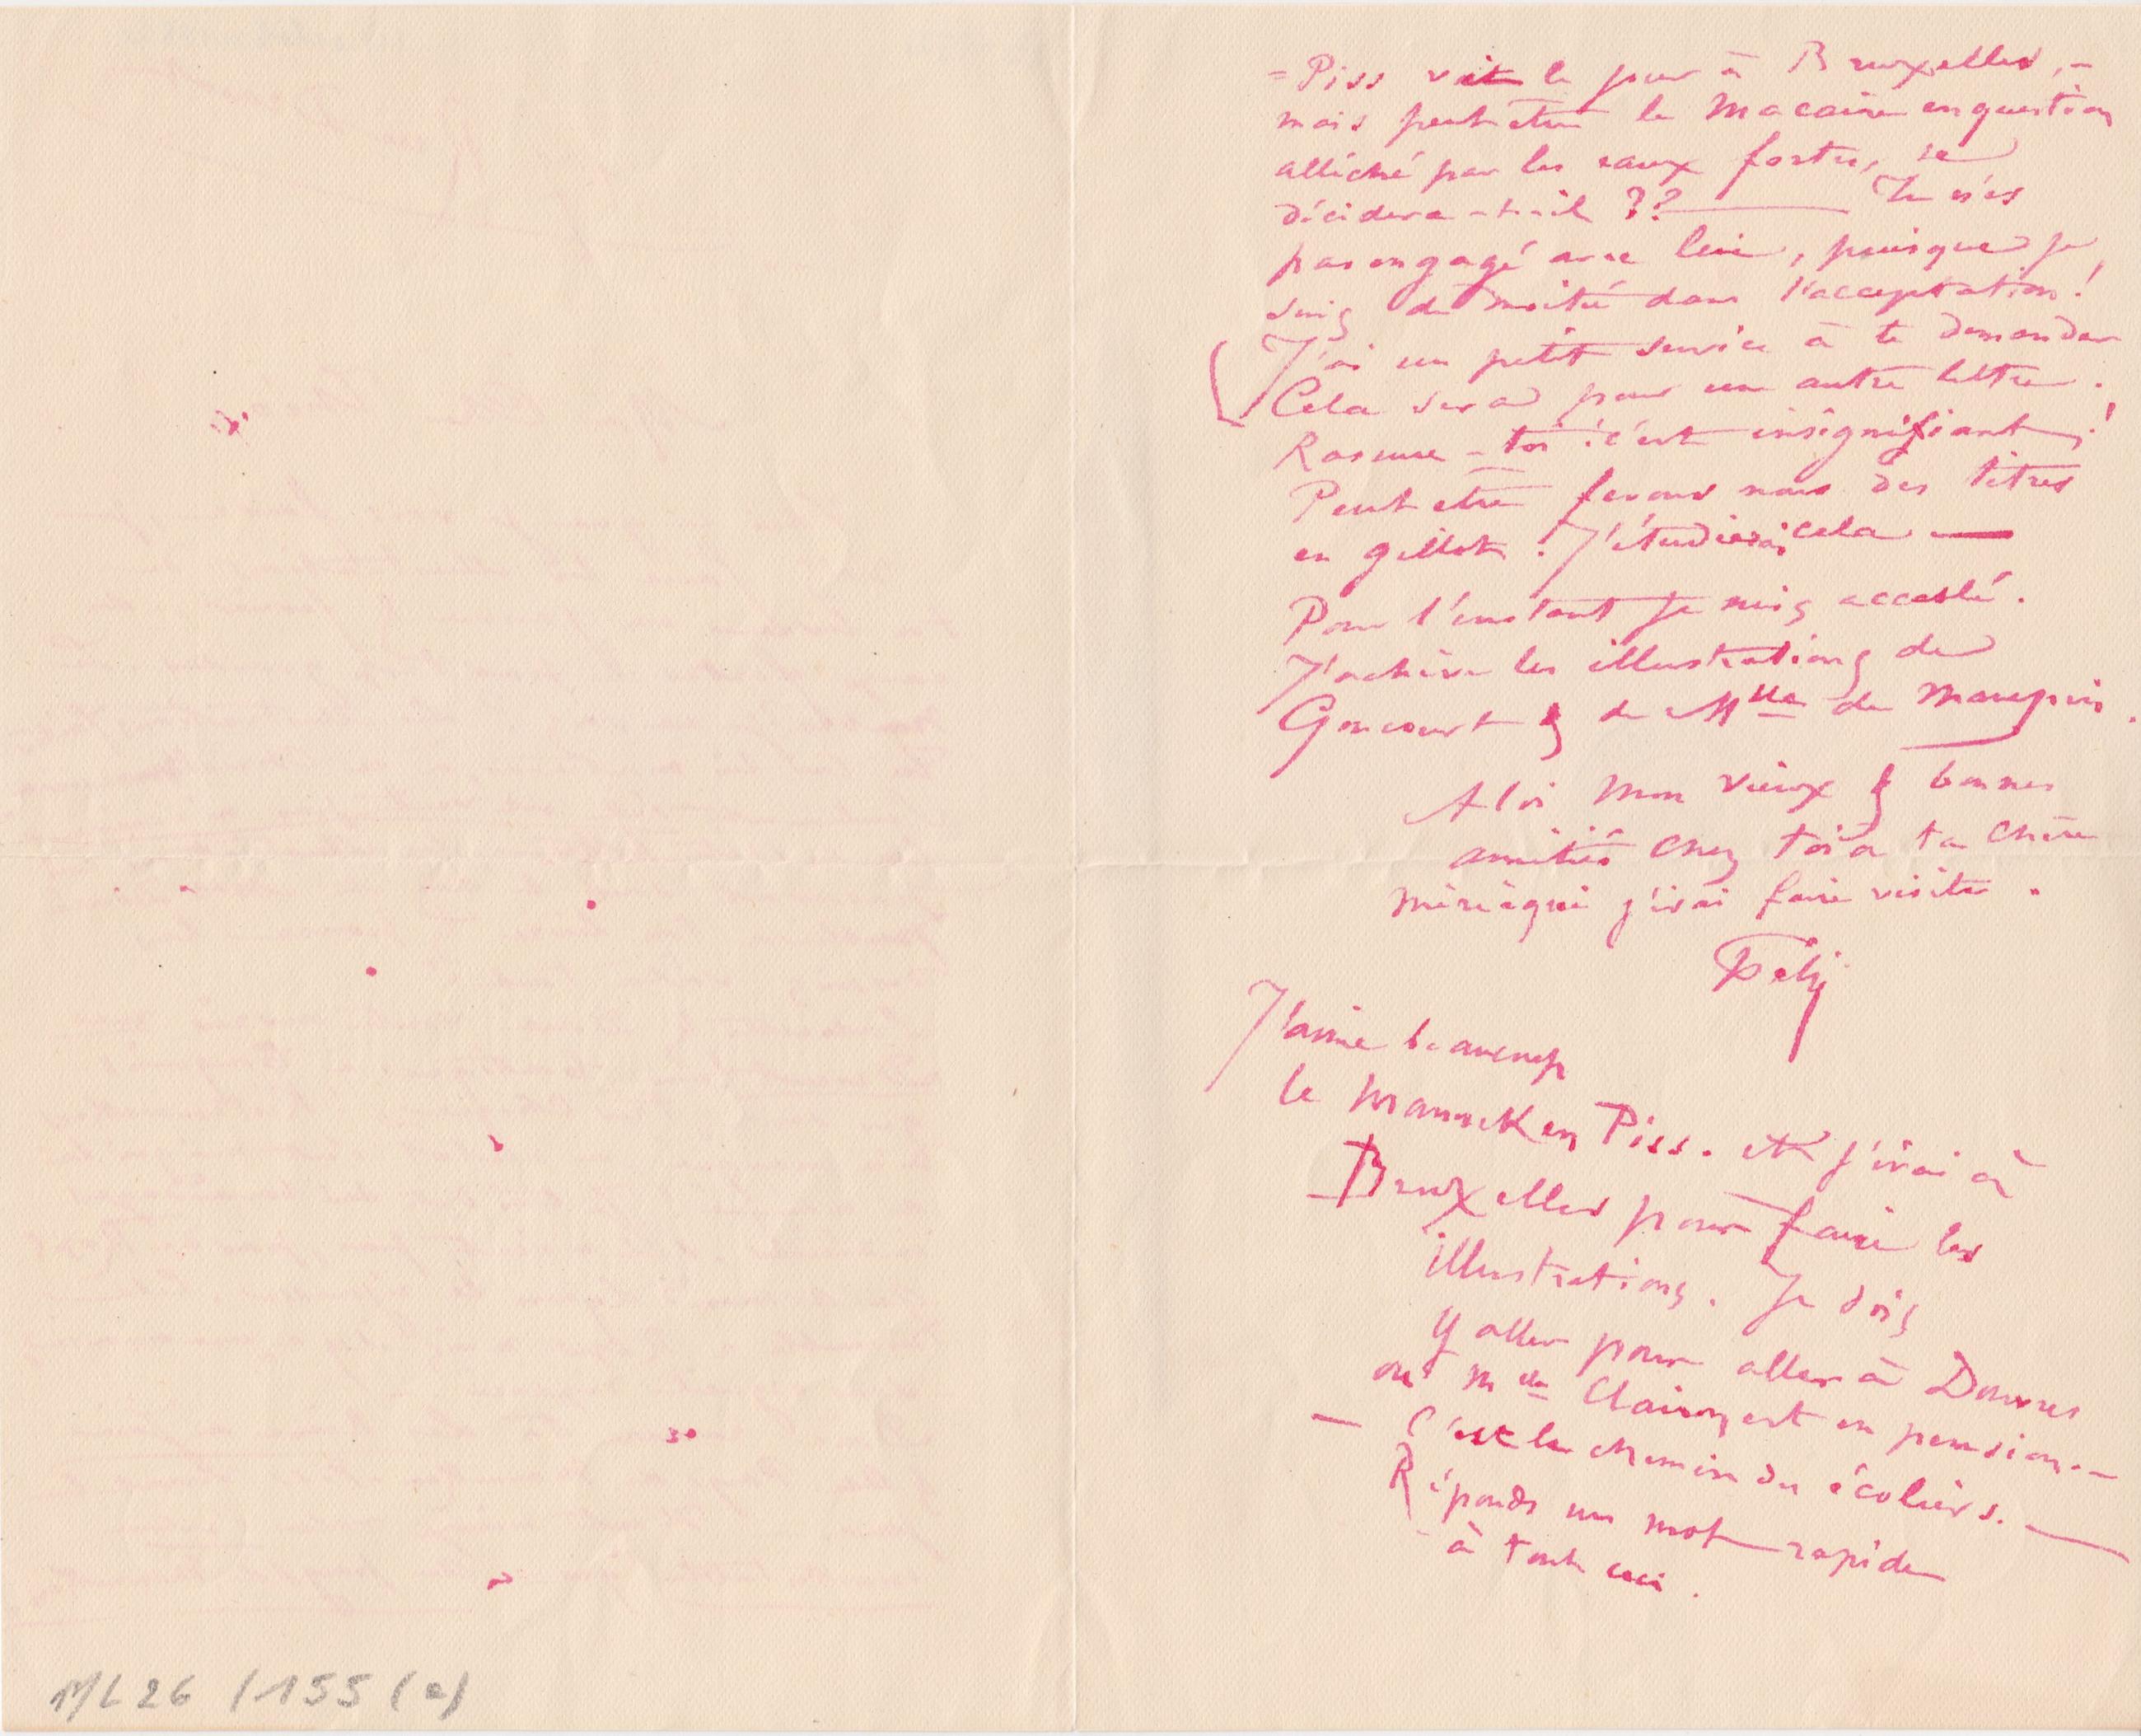 = Piss voit le jour à Bruxelles, –
mais peut etre le Macaire en question
alléché par les eaux fortes, se
décidera-t-il ?? —— Tu n'es
pas engagé avec lui, puisque je
suis de moitié dans l'acceptation!
J'ai un petit service à te demander
Cela sera pour une autre lettre.
Rassure-toi! c'est insignifiant!
Peut etre ferons nous des titres
en gillot. J'étudierai cela —
Pour l'instant je suis accablé.
J'achève les illustrations de
Goncourt & de Mlle de Maupin.
A toi mon vieux & bonnes
amitiés chez toi à ta chère
mère à qui j'irai faire visite.
Fély
J'aime beaucoup
le Manneken Piss. et j'irai à
Bruxelles pour faire les
illustrations. Je dois
y aller pour aller à Douvres
où Mlle Clairon est en pension. –
— C'est le chemin des écoliers. —
Réponds un mot rapide
à tout ceci.
ML 26 / 155 (a)